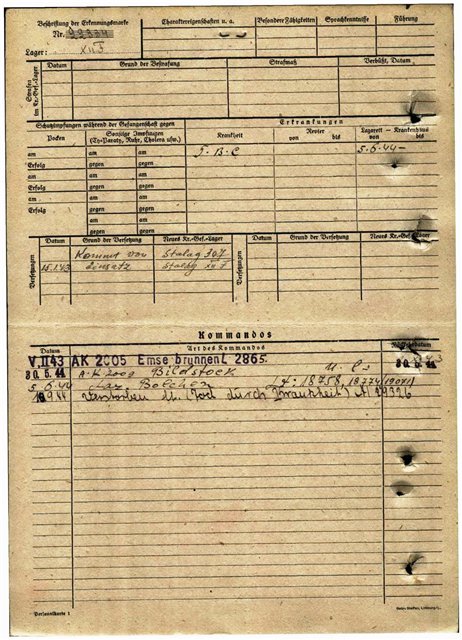 Beschriftung der Erkennungsmarke
Nr. 99334
Lager: XII F
Charaktereigenschaften u. a.
Besondere Fähigkeiten
Sprachkenntnisse
Führung
Strafen im Kr.-Gef.-Lager
Datum
Grund der Bestrafung
Strafmaß
Verbüßt, Datum
Schutzimpfungen während der Gefangenschaft gegen
Erkrankungen
Pocken
Sonstige Impfungen
(Ty-Paraty, Ruhr, Cholera usw.)
Krankheit
Revier
von bis
Lazarett – Krankenhaus
von bis
am am am T.B.C 5.6.44-
Erfolg gegen gegen
am am am
Erfolg gegen gegen
am am am
Erfolg gegen gegen
am am am
Erfolg gegen gegen
Versetzungen
Datum
Grund der Versetzung
Neues Kr.-Gef.-Lager
Versetzungen
Datum
Grund der Versetzung
Neues Kr.-Gef.-Lager
Kommt von Stalag 307
Einsatz Stalag XII F
Kommandos
Datum
Art des Kommandos
Rückkehrdatum
V. II 43 AK 2005 Emsebrunnen L 2865.
30.5.44 A.K. 2009 Bildstock
5.6.44 Laz. Bolchen 18758, 18774
verstorben (Tod durch Krankheit)
Personalkarte I